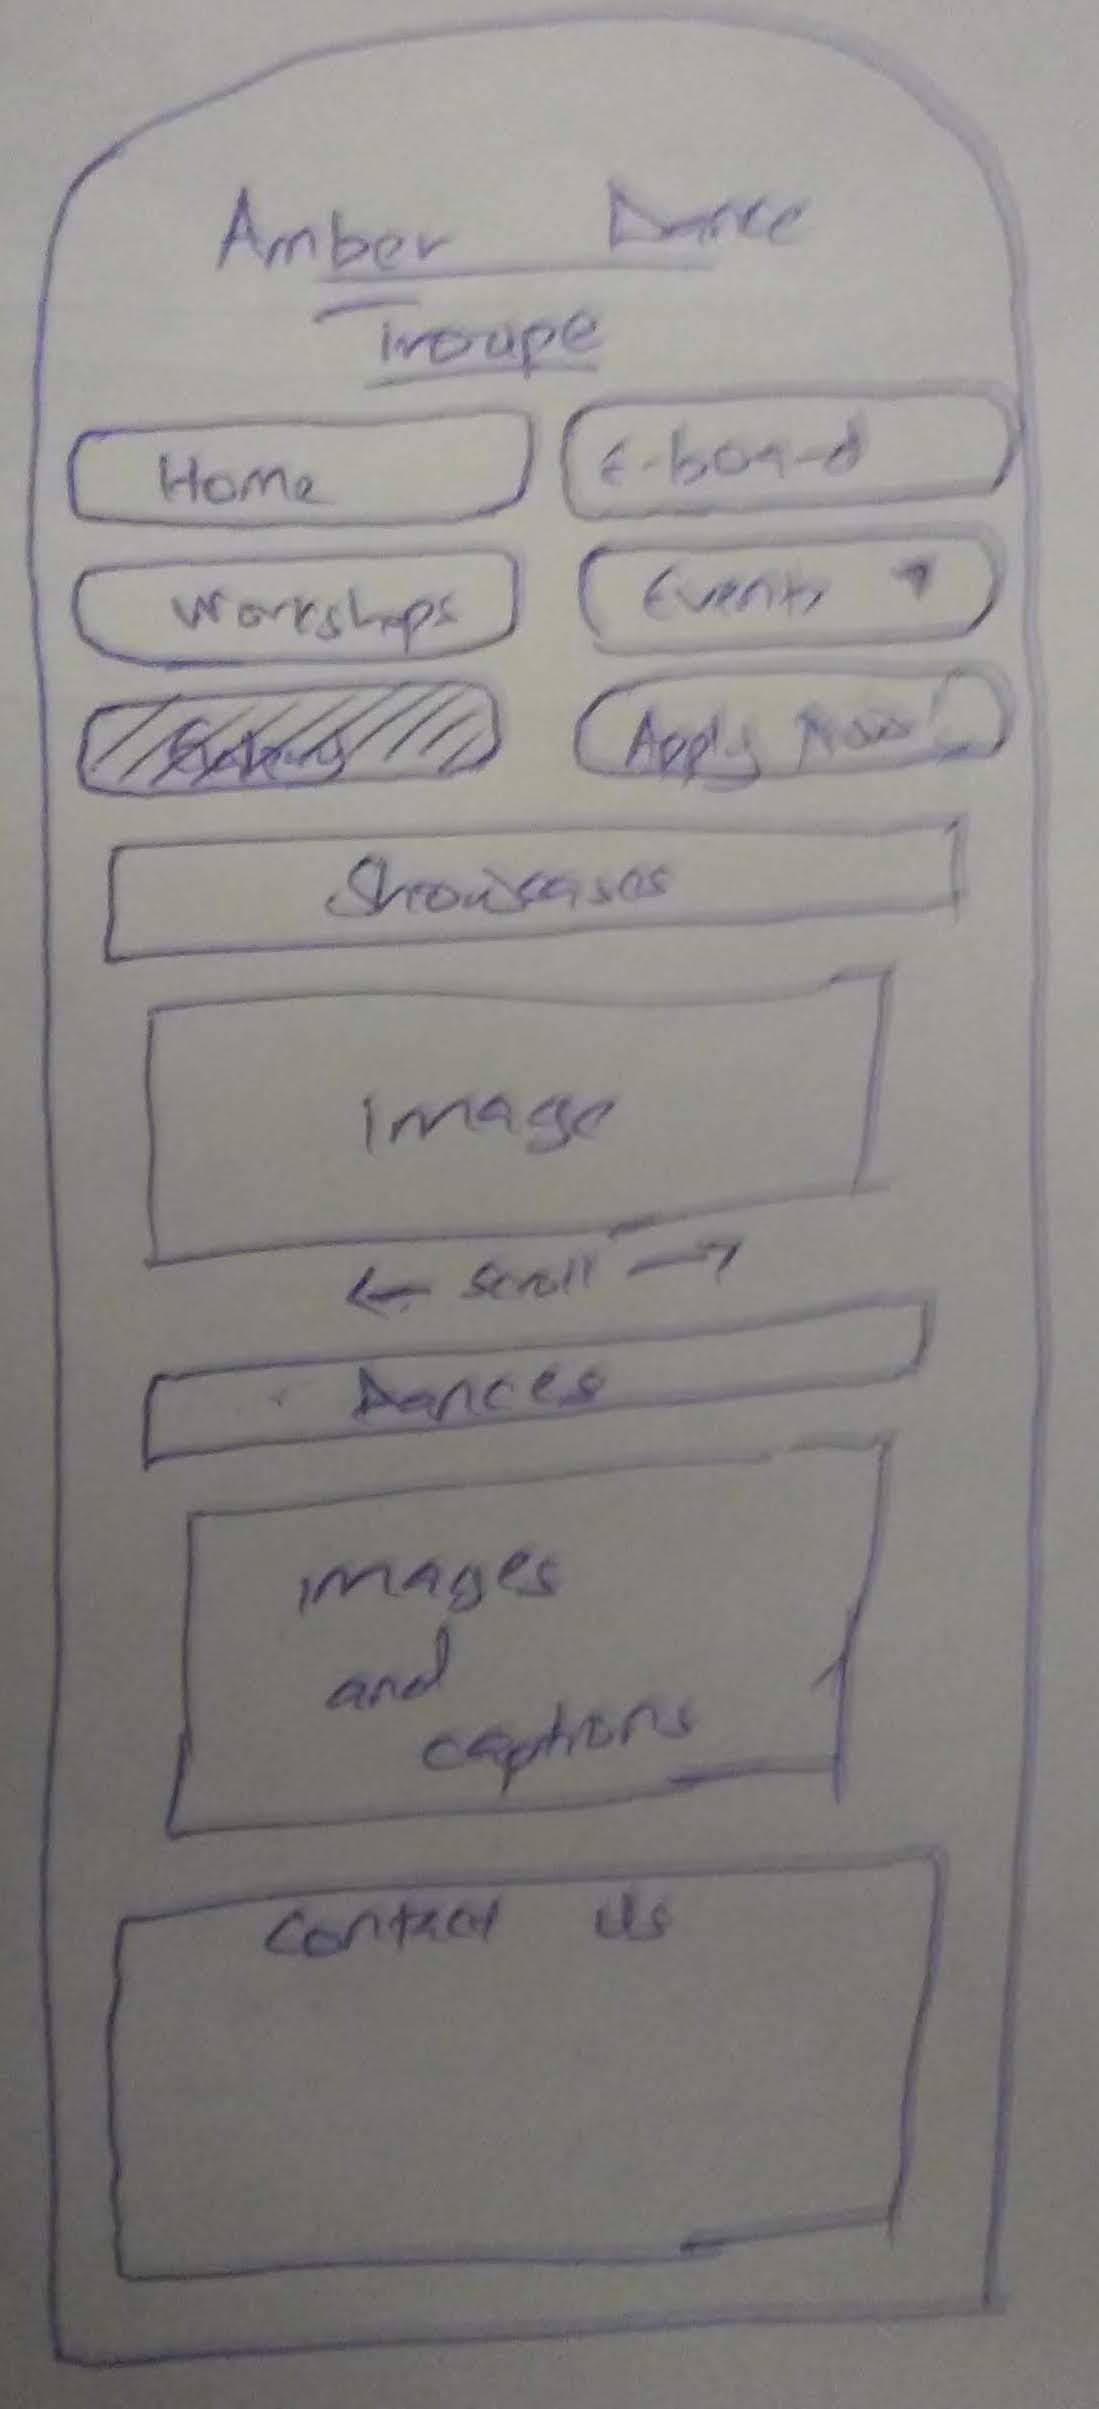 Amber Dance
Troupe
Home
E-board
Workshops
Events
Gallery
Apply Now!
Showcases
image
← scroll →
Dances
images
and
captions
Contact Us